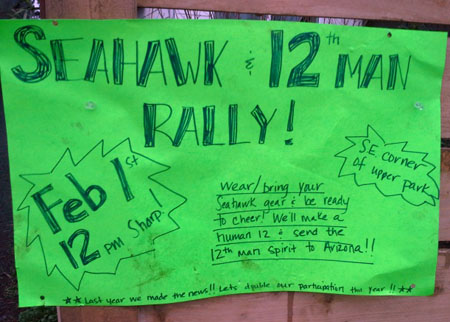 SEAHAWK & 12th MAN
RALLY!
Feb 1st
12 PM Sharp!
S.E. corner
of upper park
Wear/bring your
Seahawk gear & be ready
to cheer! We'll make a
human 12 & send the
12th man spirit to Arizona!!
★★ Last year we made the news!! Lets double our participation this year!! ★★